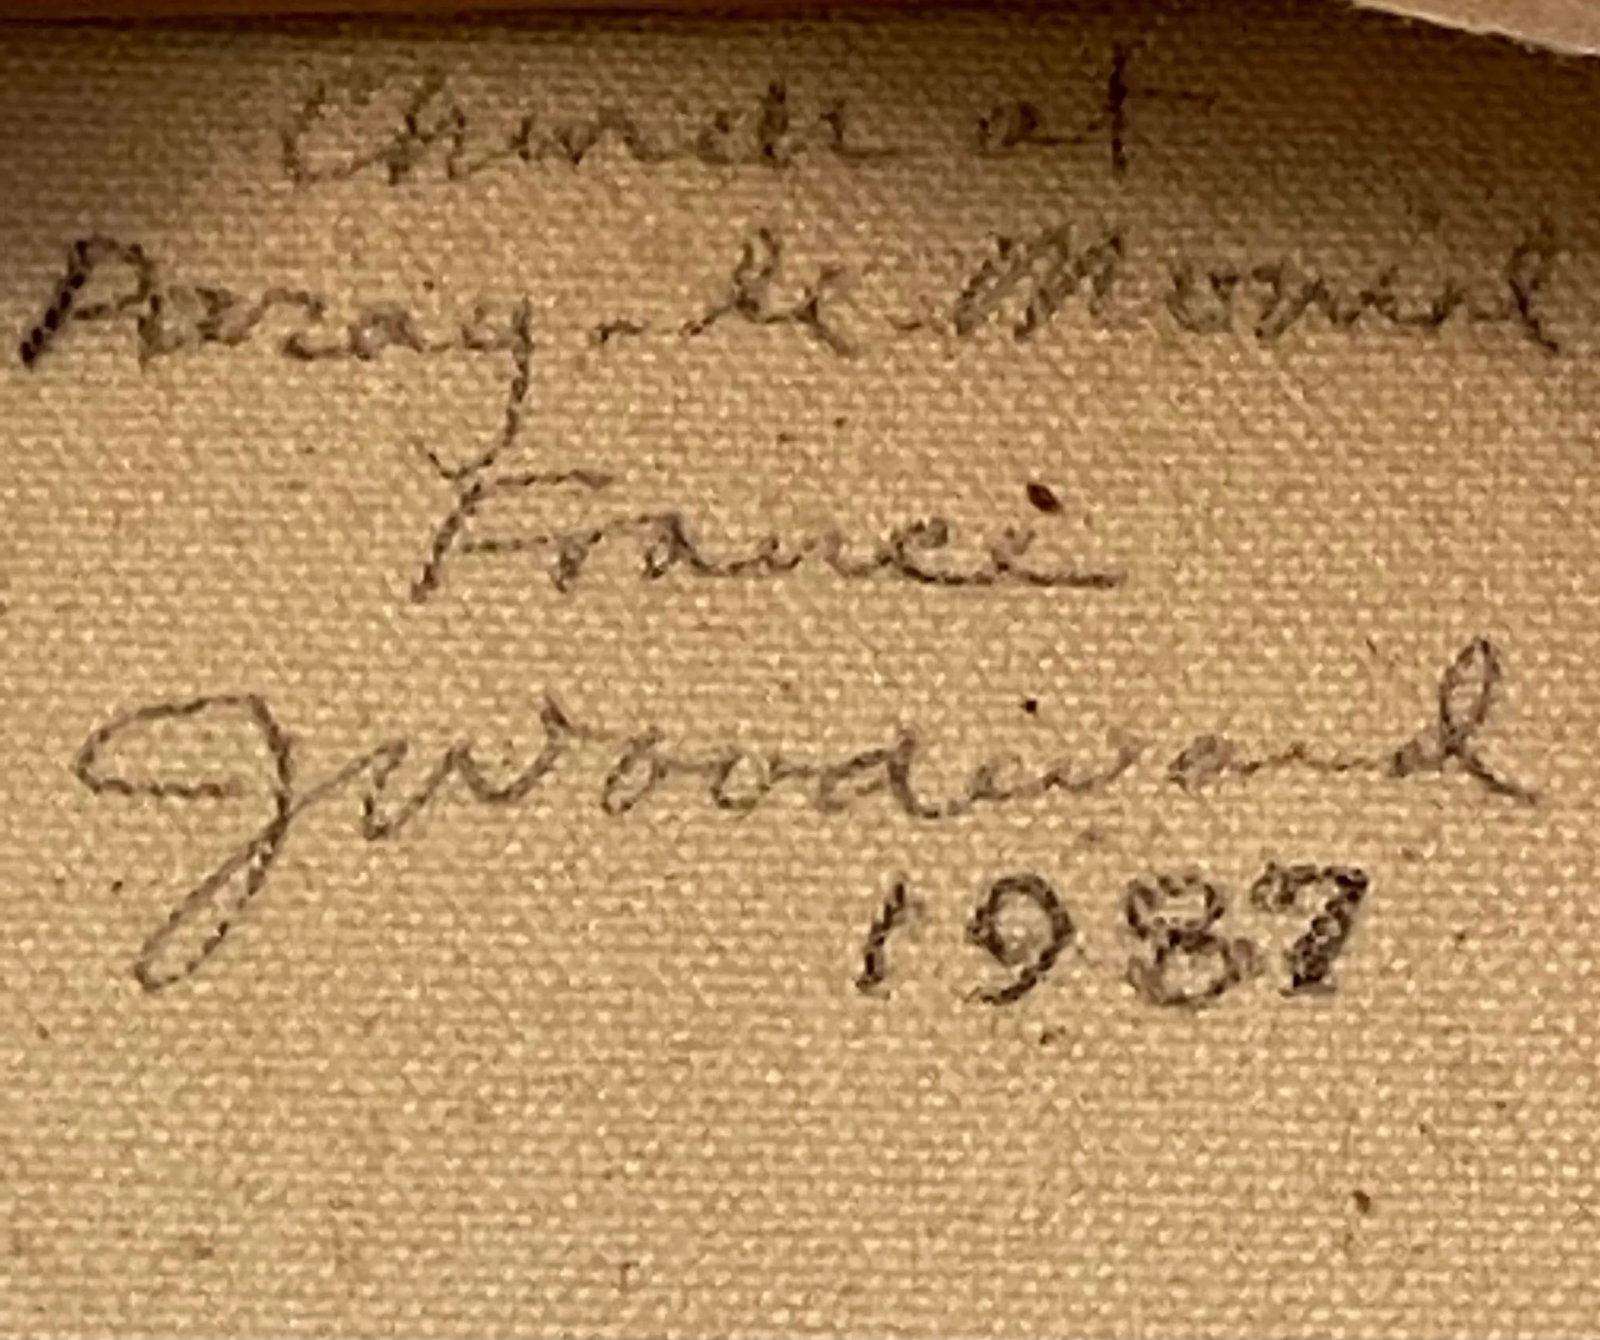 Church at
Paray-le-Monial
France
JWoodward
1987